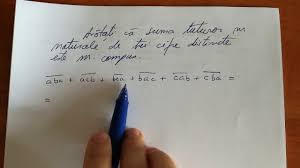 Arătati că suma tuturor nr
naturale de trei cifre distincte
este nr. compus.
abc + acb + bca + bac + cab + cba =
=